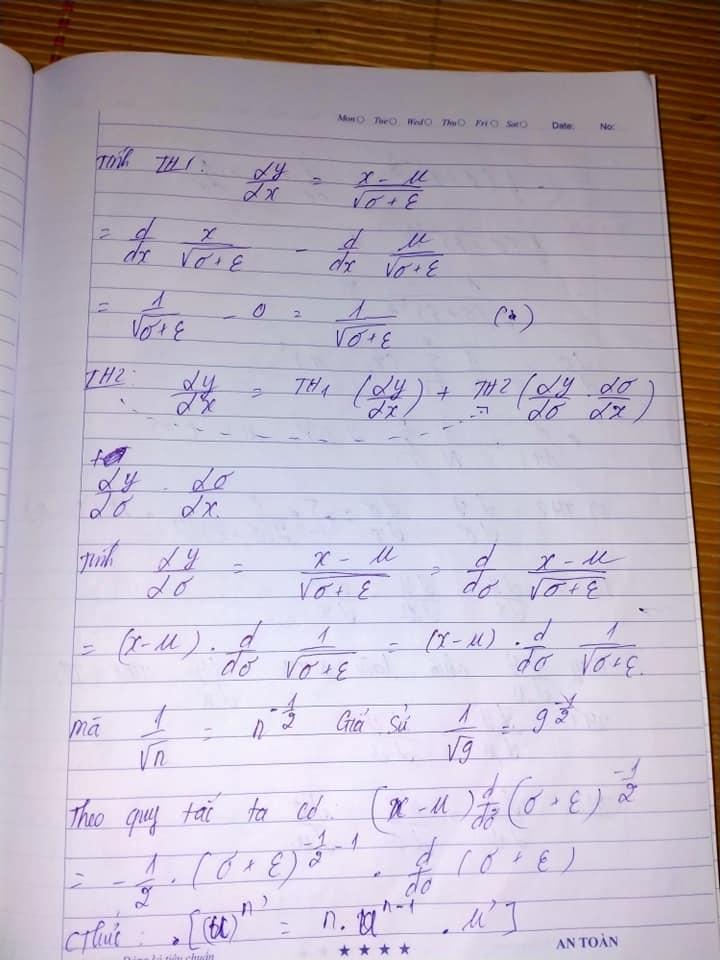 Mon Tue Wed Thu Fri Sat Date: No:
Tính TH1: ∂y/∂x = (x - μ)/√(σ+ε)
= d/dx x/√(σ+ε) - d/dx μ/√(σ+ε)
= 1/√(σ+ε) - 0 = 1/√(σ+ε)
TH2: ∂y/∂x = TH1 (∂y/∂x) + TH2 (∂y/∂σ · ∂σ/∂x)
∂y/∂σ · ∂σ/∂x
Tính ∂y/∂σ = (x - μ)/√(σ+ε) = d/dσ (x - μ)/√(σ+ε)
= (x-μ) · d/dσ 1/√(σ+ε) = (x-μ) · d/dσ 1/√(σ+ε).
Mà 1/√n = n^(-1/2) Giả sử 1/√g = g^(-1/2)
Theo quy tắc ta có: (x - μ) d/dσ (σ + ε)^(-1/2)
= -1/2 · (σ + ε)^(-1/2 - 1) · d/dσ (σ + ε)
CThức: [(u)^n' = n·u^(n-1) · u']
AN TOÀN